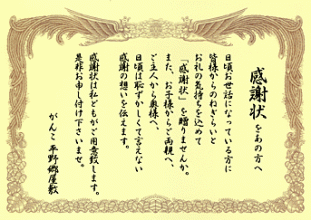 感謝状をあの方へ
日頃お世話になっている方に
皆様からのねぎらいと
お礼の気持ちを込めて
「感謝状」を贈りませんか。
また、お子様からご両親へ、
ご主人から奥様へ、
日頃は恥ずかしくて言えない
感謝の想いを伝えます。
感謝状は私どもがご用意致します。
是非お申し付け下さいませ。
がんこ 平野郷屋敷